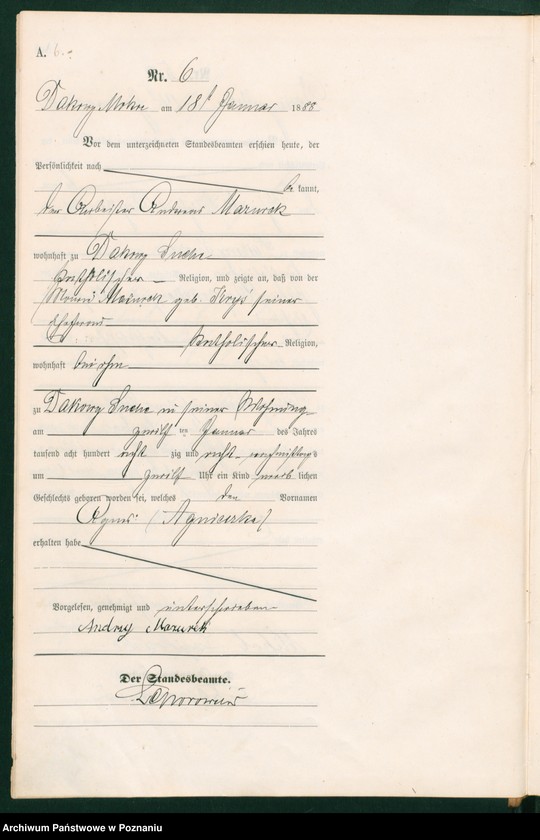 A. 6.
Nr. 6
Dakowy Mokre am 18t Januar 1888
Vor dem unterzeichneten Standesbeamten erschien heute, der
Persönlichkeit nach
be kannt,
der Arbeiter Andreas Mazurek
wohnhaft zu Dakowy Suche
katholischer Religion, und zeigte an, daß von der
geb. seiner
Ehefrau
katholischer Religion,
wohnhaft bei ihm
zu Dakowy Suche in seiner Wohnung
am zwölf ten Januar des Jahres
tausend acht hundert acht zig und acht
um zwölf Uhr ein Kind weib lichen
Geschlechts geboren worden sei, welches den Vornamen
Agnes (Agnieszka)
erhalten habe
Vorgelesen, genehmigt und unterschrieben
Andrzy Mazurek
Der Standesbeamte.
Archiwum Państwowe w Poznaniu